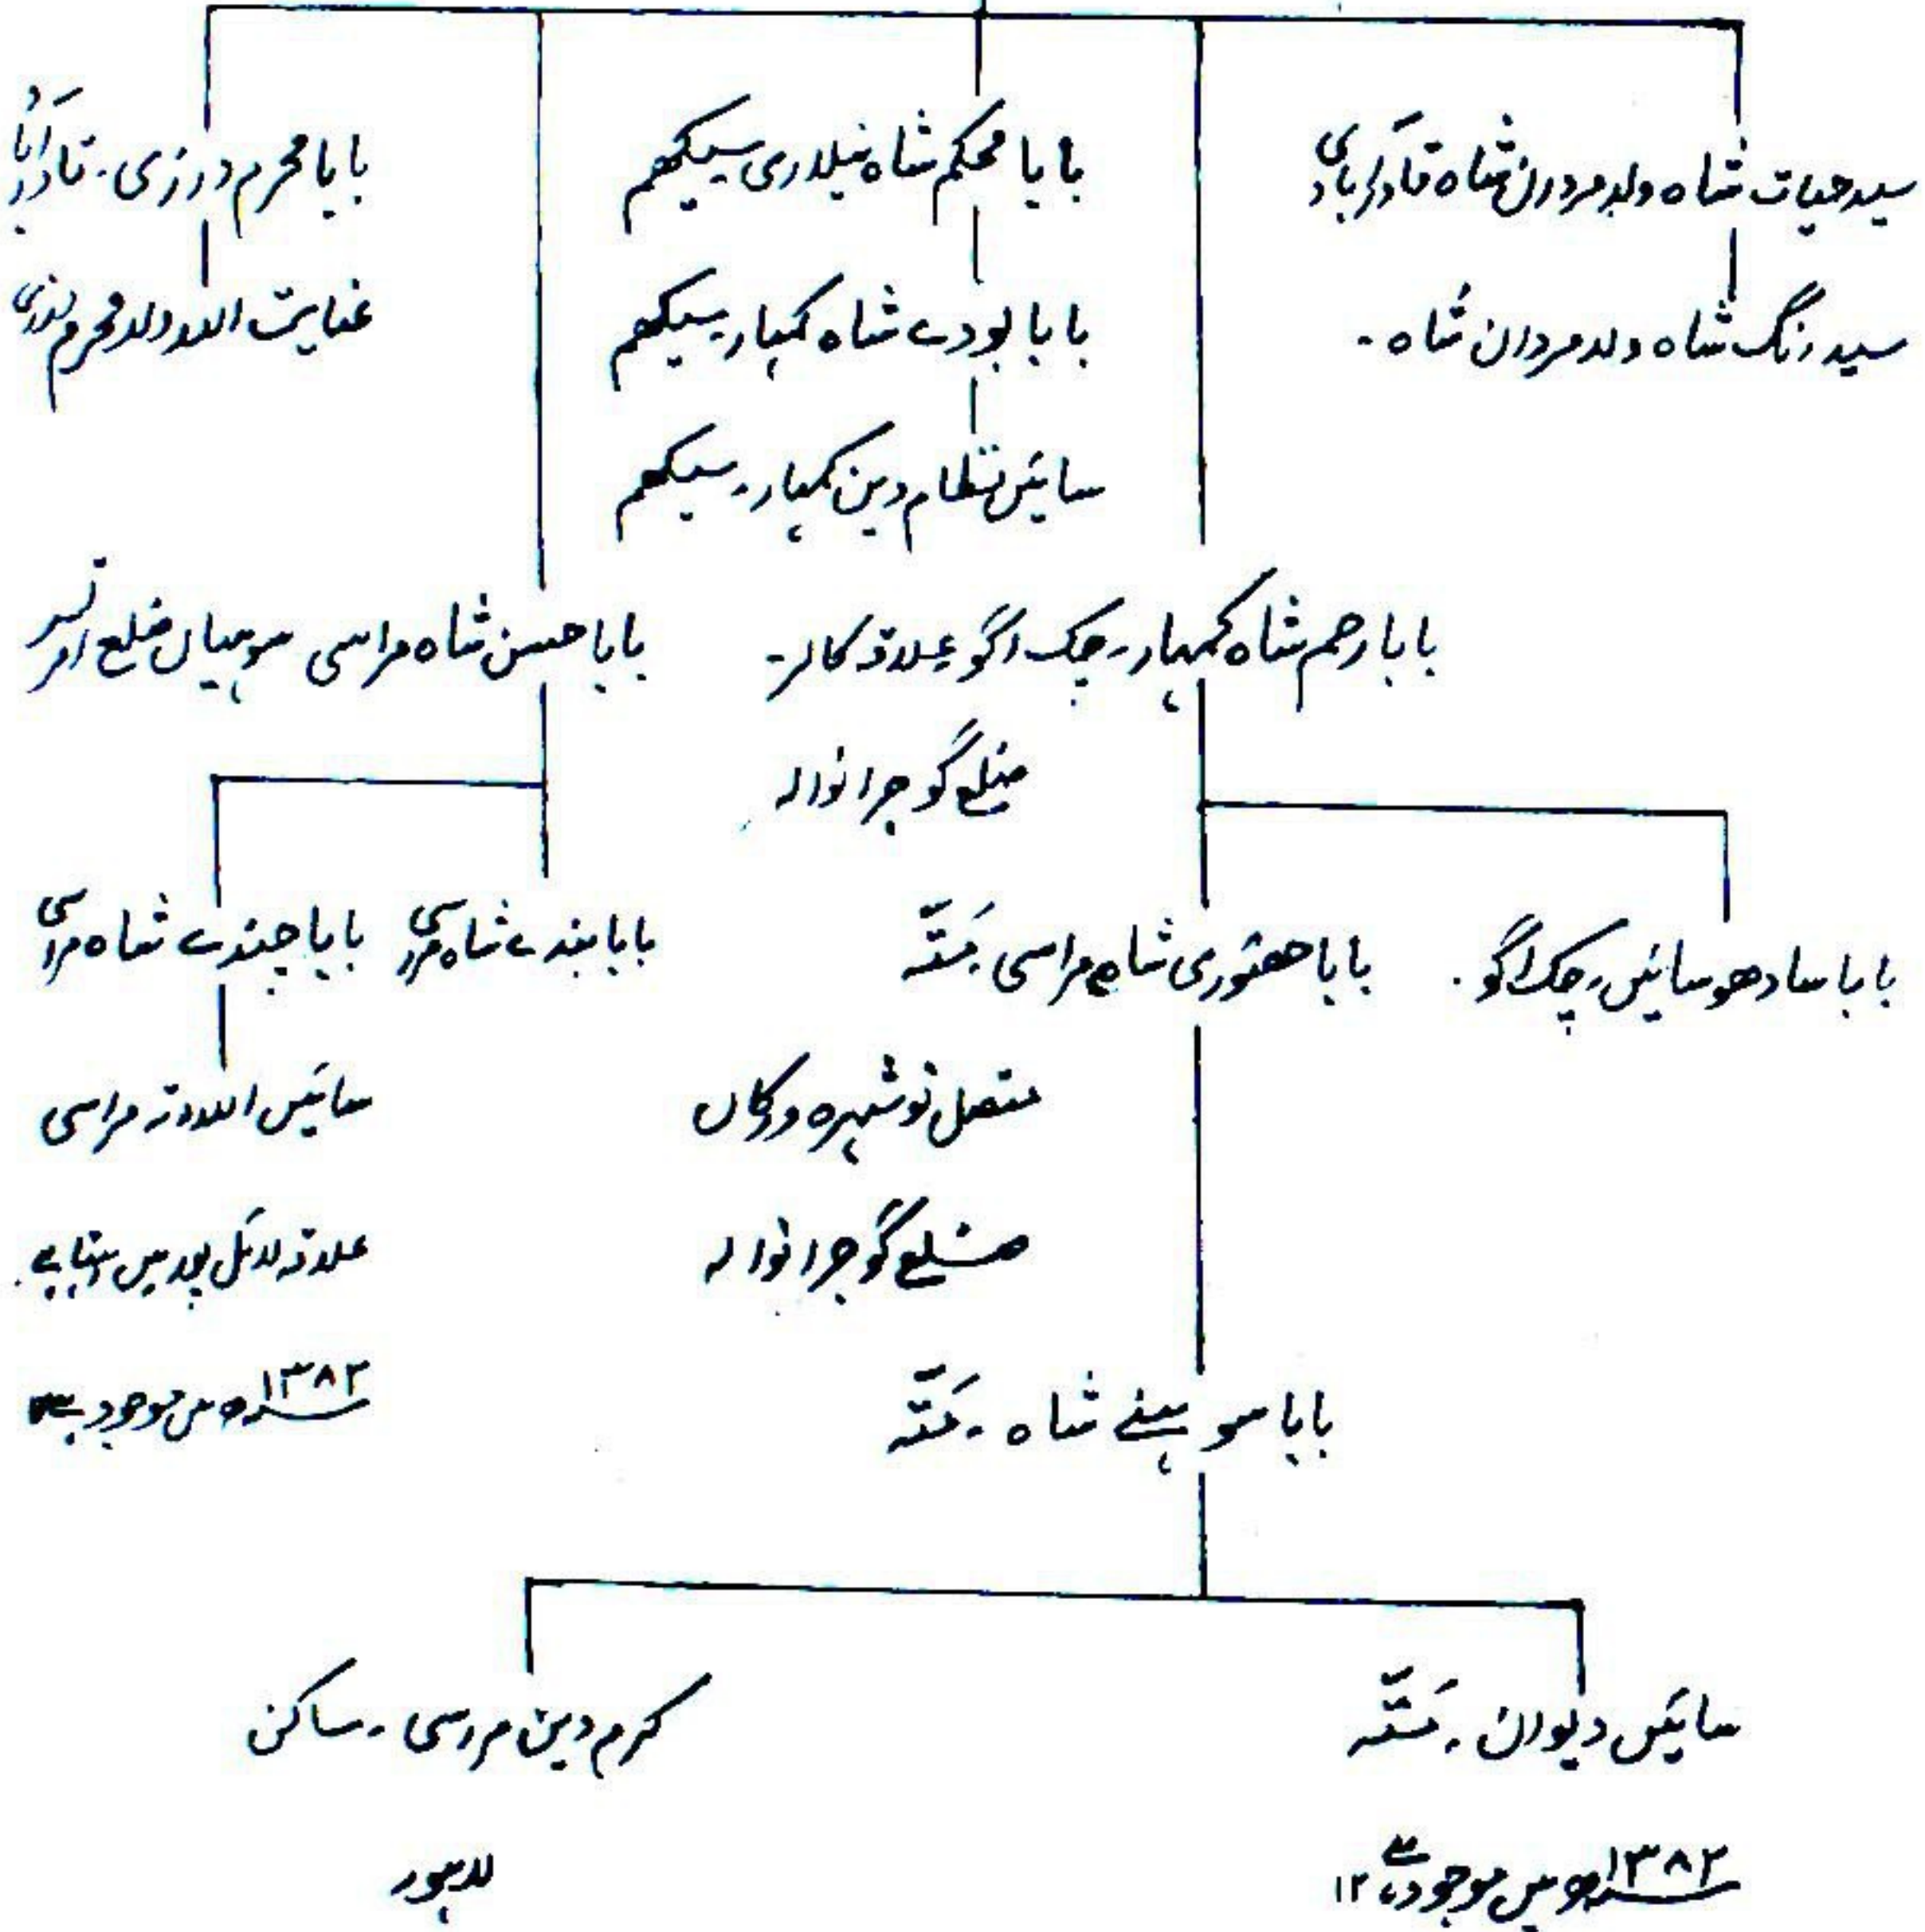 سید حیات شاہ ولد مردان شاہ قادرآبادی
سید رنگ شاہ ولد مردان شاہ ۔
بابا محکم شاہ نیلاری سیکھم
بابا بودے شاہ کمہار سیکھم
سائیں نظام دین کمہار ۔ سیکھم
بابا محرم درزی ۔ قادرآباد
عنایت اللہ ولد محرم درزی
بابا رحم شاہ کمہار ۔ چک اگو علاقہ کالر ۔
ضلع گوجرانوالہ
بابا حسن شاہ مراسی سوہیاں ضلع امرتسر
بابا سادھو سائیں ۔ چک اگو ۔
بابا حضوری شاہ مراسی ۔ مَتّہ
متصل نوشہرہ ورکاں
ضلع گوجرانوالہ
بابا بندے شاہ مراسی
بابا چندے شاہ مراسی
سائیں اللہ دتہ مراسی
علاقہ لائل پور میں رہتا ہے ۔
۱۳۸۲ھ میں موجود ہے
بابا سوہنے شاہ ۔ مَتّہ
سائیں دیوان ۔ مَتّہ
۱۳۸۲ھ میں موجود ہے ۱۲
کرم دین مراسی ۔ ساکن
لاہور